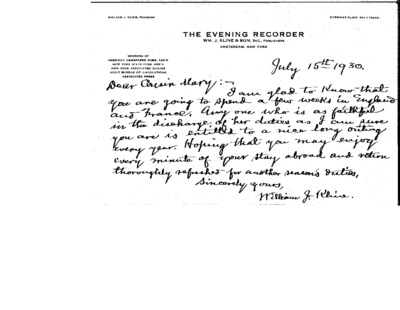 WILLIAM J. KLINE, PRESIDENT
THE EVENING RECORDER
WM. J. KLINE & SON, INC., PUBLISHERS
AMSTERDAM, NEW YORK
MEMBERS OF
AMERICAN NEWSPAPER PUBS. ASS'N
NEW YORK STATE PUBS. ASS'N
NEW YORK ASSOCIATED DAILIES
AUDIT BUREAU OF CIRCULATIONS
ASSOCIATED PRESS
July 15th 1930.
Dear Cousin Mary:-
I am glad to know that
you are going to spend a few weeks in England
and France. Any one who is as faithful
in the discharge of her duties as I am sure
you are is entitled to a nice long outing
every year. Hoping that you may enjoy
every minute of your stay abroad and return
thoroughly refreshed for another season's duties,
Sincerely yours,
William J. Kline.